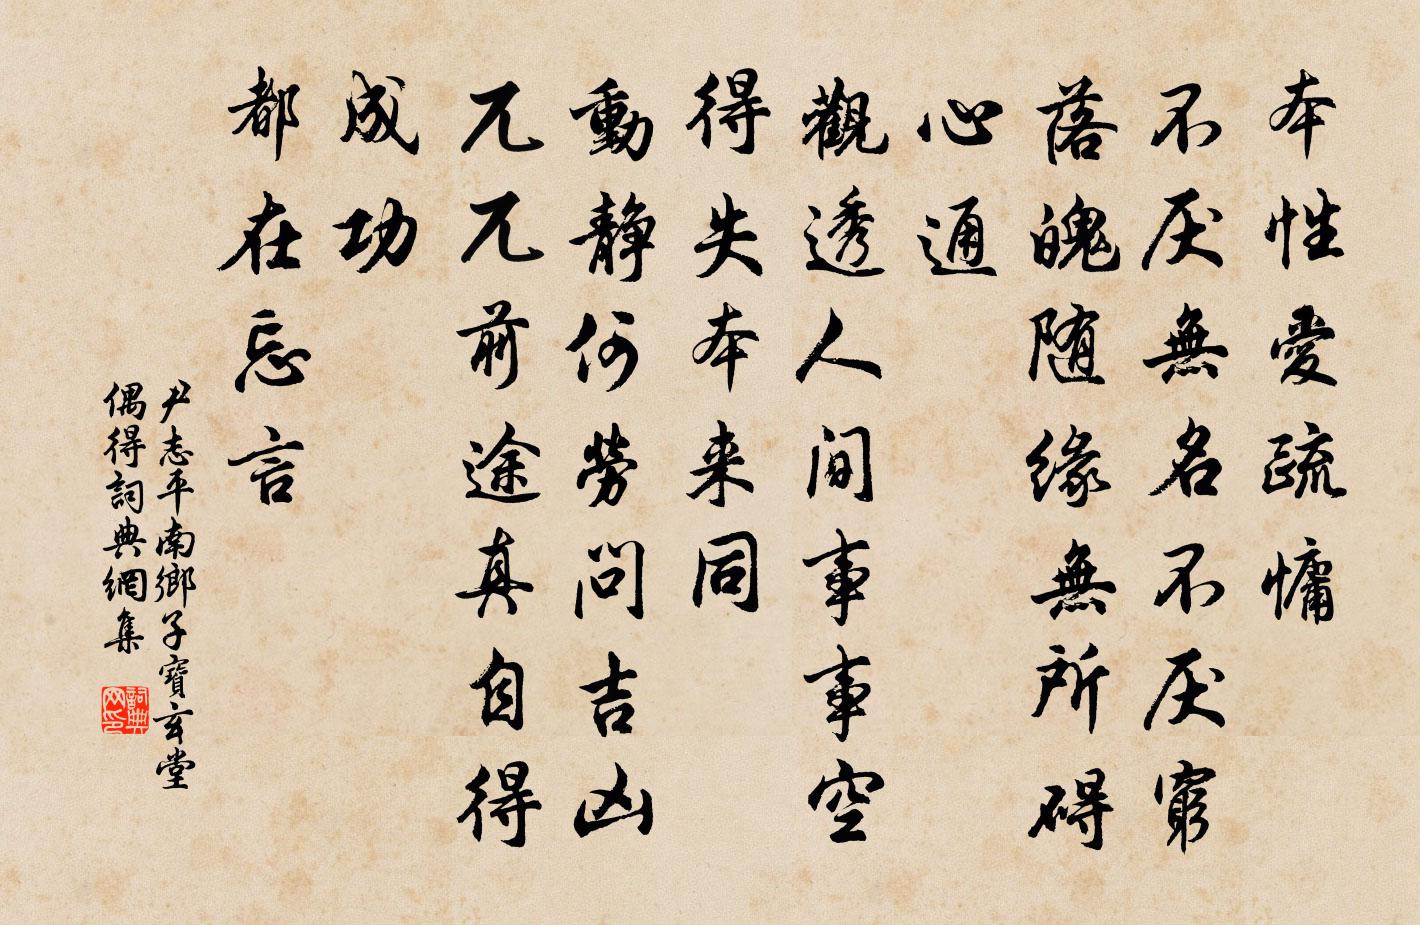 本性愛疏慵
不厌無名不厌窮
落魄随缘無所碍
心通
觀透人间事事空
得失本来同
動静何勞问吉凶
兀兀前途真自得
成功
都在忘言
尹志平南鄉子寶玄堂
偶得詞典網集
詞典网印